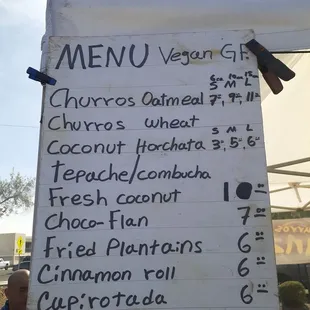 MENU Vegan GF
6oz 10oz 12oz
S M L
Churros Oatmeal 7= 9= 11=
Churros wheat
S M L
Coconut Horchata 3= 5= 6=
Tepache/combucha
Fresh coconut 10=
Choco-Flan 7=
Fried Plantains 6=
Cinnamon roll 6=
Capirotada 6=